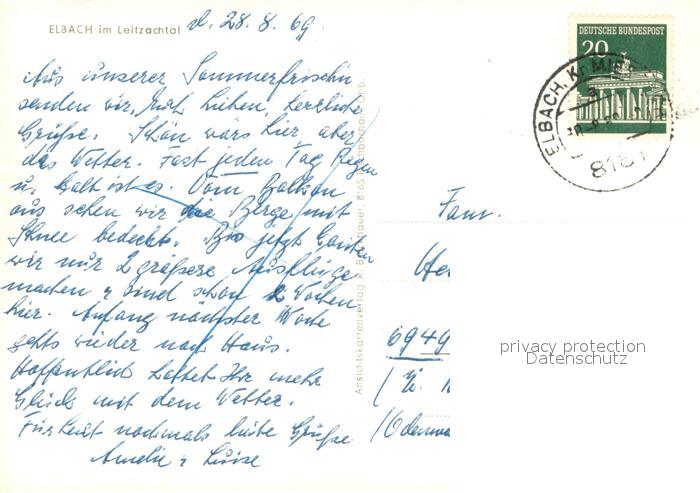 ELBACH im Leitzachtal
d. 28.8.69
Aus unserer Sommerfrische
senden wir, Euch Lieben, herzliche
Grüße. Schön wärs hier aber
das Wetter. Fast jeden Tag Regen
u. kalt ist es. Vom Balkon
aus sehen wir die Berge mit
Schnee bedeckt. Bis jetzt konnten
wir nur 2 größere Ausflüge
machen u sind schon 2 Wochen
hier. Anfang nächster Woche
gehts wieder nach Haus.
Hoffentlich hattet Ihr mehr
Glück mit dem Wetter.
Für heut nochmals liebe Grüße
Amelie u Luise
Ansichtskartenverlag
DEUTSCHE BUNDESPOST
20
ELBACH, Kr. MI
a
8161
Fam.
He
6949
(Ü.
(Odenwa
privacy protection
Datenschutz